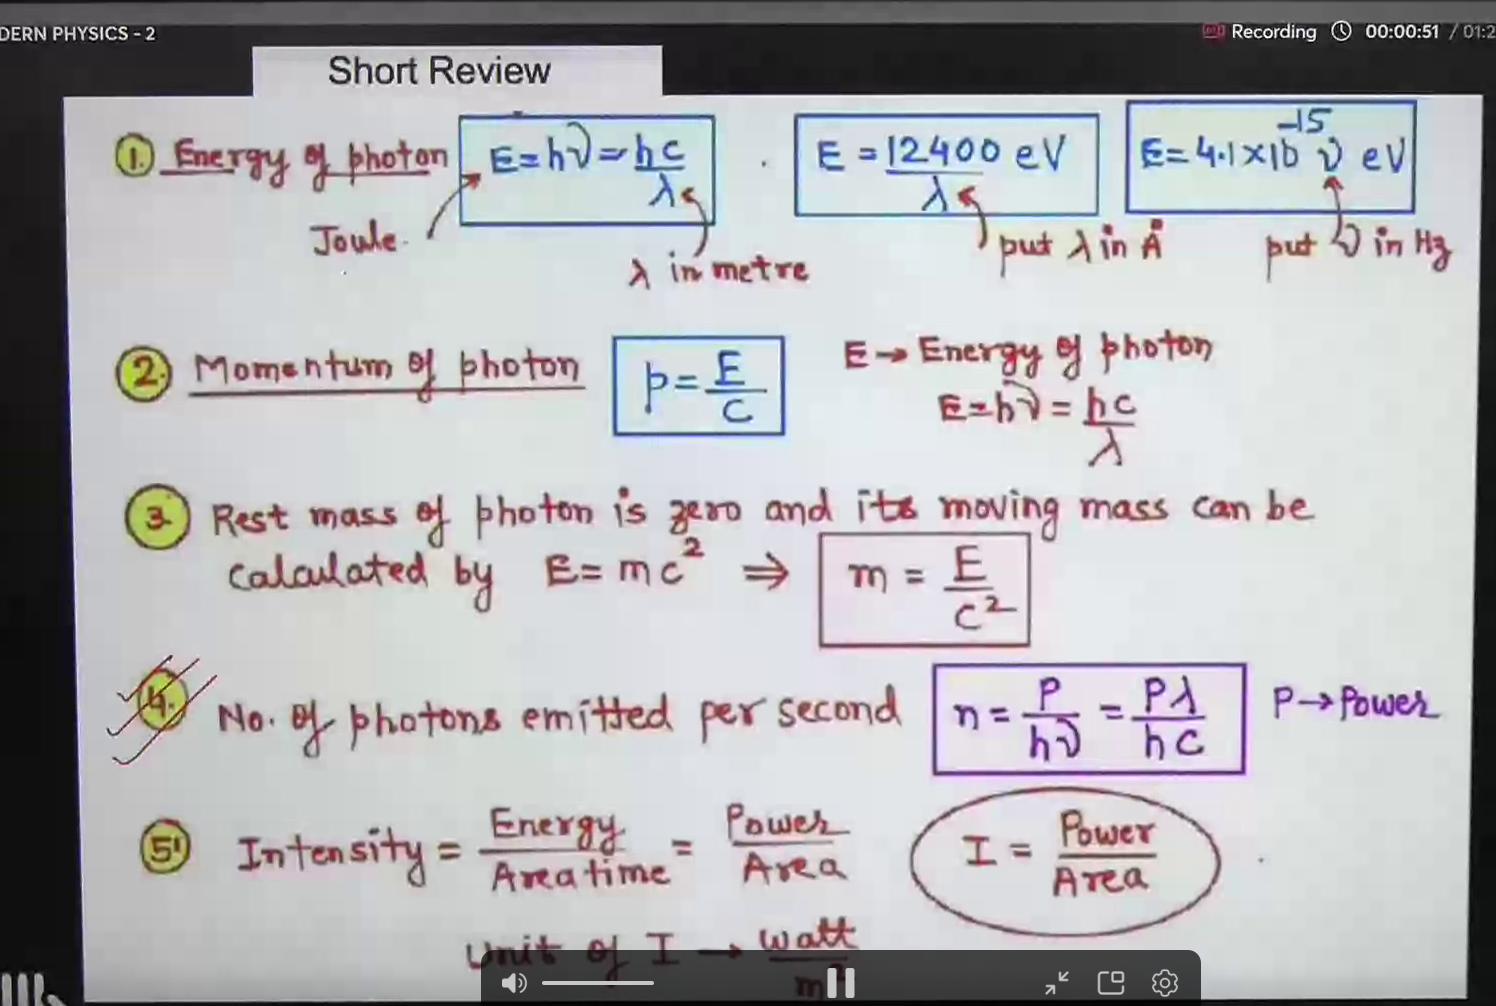 DERN PHYSICS - 2
Recording 00:00:51 / 01:2
Short Review
1. Energy of photon E = hν = hc/λ E = 12400/λ eV E = 4.1 × 10^-15 ν eV
Joule. λ in metre put λ in Å put ν in Hz
2. Momentum of photon p = E/C E → Energy of photon
E = hν = hc/λ
3. Rest mass of photon is zero and its moving mass can be
calculated by E = mc² ⇒ m = E/C²
4. No. of photons emitted per second n = P/hν = Pλ/hc P → Power
5. Intensity = Energy/Area time = Power/Area I = Power/Area
Unit of I → Watt/m²